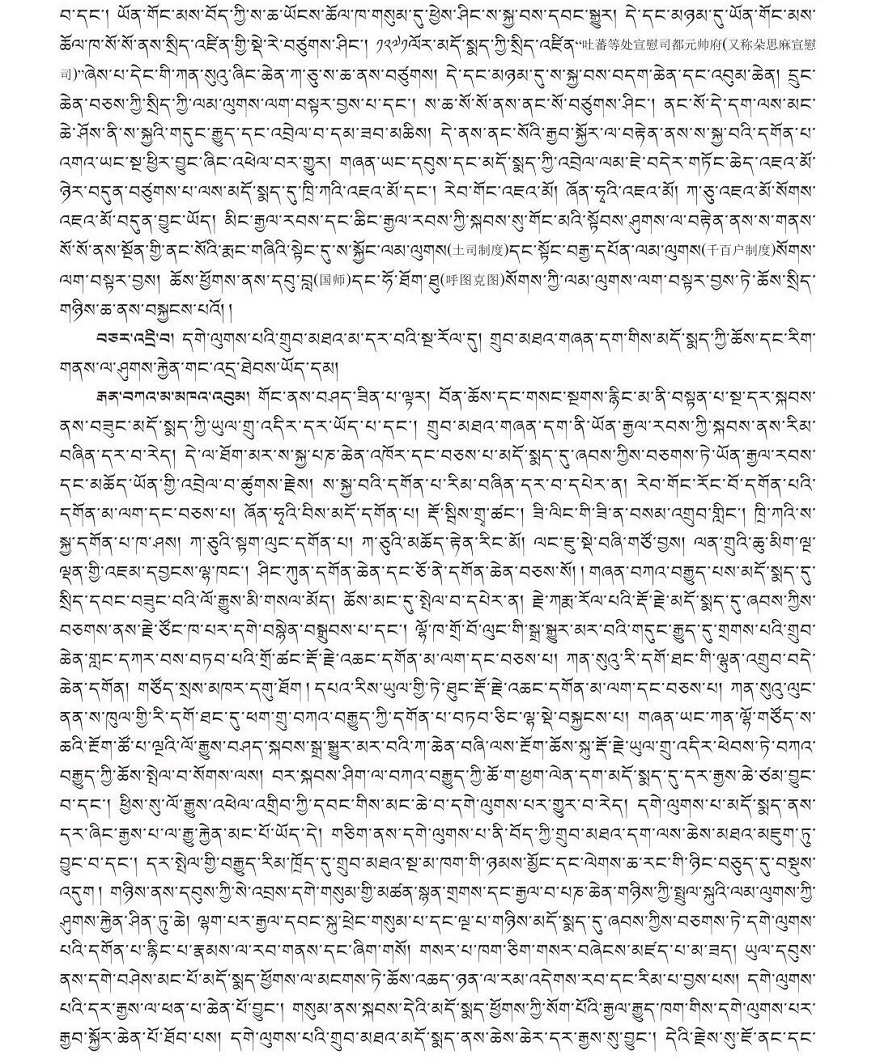 བ་དང་། ཡོན་གོང་མས་བོད་ཀྱི་ས་ཆ་ཡོངས་ཆོལ་ཁ་གསུམ་དུ་ཕྱེས་ཤིང་ས་སྐྱ་བས་དབང་སྒྱུར། དེ་དང་མཉམ་དུ་ཡོན་གོང་མས་
ཆོལ་ཁ་སོ་སོ་ནས་སྲིད་འཛིན་གྱི་སྡེ་རེ་བཙུགས་ཤིང་། ༡༢༧༡ལོར་མདོ་སྨད་ཀྱི་སྲིད་འཛིན“吐蕃等处宣慰司都元帅府(又称朵思麻宣慰
司)”ཞེས་པ་དེང་གི་ཀན་སུའུ་ཞིང་ཆེན་ཀ་ཅུ་ས་ཆ་ནས་བཙུགས། དེ་དང་མཉམ་དུ་ས་སྐྱ་བས་བདག་ཆེན་དང་འབུམ་ཆེན། དྲུང་
ཆེན་བཅས་ཀྱི་སྲིད་ཀྱི་ལམ་ལུགས་ལག་བསྟར་བྱས་པ་དང་། ས་ཆ་སོ་སོ་ནས་ནང་སོ་བཙུགས་ཤིང་། ནང་སོ་དེ་དག་ལས་མང་
ཆེ་ཤོས་ནི་ས་སྐྱའི་གདུང་རྒྱུད་དང་འབྲེལ་བ་དམ་ཟབ་མཆིས། དེ་ནས་ནང་སོའི་རྒྱབ་སྐྱོར་ལ་བརྟེན་ནས་ས་སྐྱ་བའི་དགོན་པ་
འགའ་ཡང་སྔ་ཕྱིར་བྱུང་ཞིང་འཕེལ་བར་གྱུར། གཞན་ཡང་དབུས་དང་མདོ་སྨད་ཀྱི་འབྲེལ་ལམ་ཇེ་བདེར་གཏོང་ཆེད་འཇའ་མོ་
ཉེར་བདུན་བཙུགས་པ་ལས་མདོ་སྨད་དུ་ཁྲི་ཀའི་འཇའ་མོ་དང་། རེབ་གོང་འཇའ་མོ། ཞོན་ཧྭའི་འཇའ་མོ། ཀ་ཅུ་འཇའ་མོ་སོགས་
འཇའ་མོ་བདུན་བྱུང་ཡོད། མིང་རྒྱལ་རབས་དང་ཆིང་རྒྱལ་རབས་ཀྱི་སྐབས་སུ་གོང་མའི་སྟོབས་ཤུགས་ལ་བརྟེན་ནས་ས་གནས་
སོ་སོ་ནས་སྔོན་གྱི་ནང་སོའི་རྨང་གཞིའི་སྟེང་དུ་ས་སྐྱོང་ལམ་ལུགས(土司制度)དང་སྟོང་བརྒྱ་དཔོན་ལམ་ལུགས(千百户制度)སོགས་
ལག་བསྟར་བྱས། ཆོས་ཕྱོགས་ནས་དབུ་བླ(国师)དང་ཧོ་ཐོག་ཐུ(呼图克图)སོགས་ཀྱི་ལམ་ལུགས་ལག་བསྟར་བྱས་ཏེ་ཆོས་སྲིད་
གཉིས་ཆ་ནས་བསྐྱངས་པའོ། །
བཅར་འདྲི་བ། དགེ་ལུགས་པའི་གྲུབ་མཐའ་མ་དར་བའི་སྔ་རོལ་དུ། གྲུབ་མཐའ་གཞན་དག་གིས་མདོ་སྨད་ཀྱི་ཆོས་དང་རིག་
གནས་ལ་ཤུགས་རྐྱེན་གང་འདྲ་ཐེབས་ཡོད་དམ།
རྒན་བཀའ་མ་མཁའ་འབུམ། གོང་ནས་བཤད་ཟིན་པ་ལྟར། བོན་ཆོས་དང་གསང་སྔགས་རྙིང་མ་ནི་བསྟན་པ་སྔ་དར་སྐབས་
ནས་བཟུང་མདོ་སྨད་ཀྱི་ཡུལ་གྲུ་འདིར་དར་ཡོད་པ་དང་། གྲུབ་མཐའ་གཞན་དག་ནི་ཡོན་རྒྱལ་རབས་ཀྱི་སྐབས་ནས་རིམ་
བཞིན་དར་བ་རེད། དེ་ལ་ཐོག་མར་ས་སྐྱ་པཎ་ཆེན་འཁོར་དང་བཅས་པ་མདོ་སྨད་དུ་ཞབས་ཀྱིས་བཅགས་ཏེ་ཡོན་རྒྱལ་རབས་
དང་མཆོད་ཡོན་གྱི་འབྲེལ་བ་ཚུགས་རྗེས། ས་སྐྱ་བའི་དགོན་པ་རིམ་བཞིན་དར་བ་དཔེར་ན། རེབ་གོང་རོང་བོ་དགོན་པའི་
དགོན་མ་ལག་དང་བཅས་པ། ཞོན་ཧྭའི་བིས་མདོ་དགོན་པ། རྡོ་སྦིས་གྲྭ་ཚང་། ཟི་ལིང་གི་ཟི་ན་བསམ་འགྲུབ་གླིང་། ཁྲི་ཀའི་ས་
སྐྱ་དགོན་པ་ཁ་ཤས། ཀ་ཅུའི་སྟག་ལུང་དགོན་པ། ཀ་ཅུའི་མཆོད་རྟེན་རིང་མོ། ལང་ཇུ་སྡེ་བཞི་གཙོ་བྱས། ལན་གྲུའི་ཆུ་མིག་ལྔ་
ལྡན་གྱི་འཇམ་དབྱངས་ལྷ་ཁང་། ཤིང་ཀུན་དགོན་ཆེན་དང་ཅོ་ནེ་དགོན་ཆེན་བཅས་སོ། །གཞན་བཀའ་བརྒྱུད་པས་མདོ་སྨད་དུ་
སྲིད་དབང་བཟུང་བའི་ལོ་རྒྱུས་མི་གསལ་མོད། ཆོས་མང་དུ་སྤེལ་བ་དཔེར་ན། རྗེ་ཀརྨ་རོལ་པའི་རྡོ་རྗེ་མདོ་སྨད་དུ་ཞབས་ཀྱིས་
བཅགས་ནས་རྗེ་ཙོང་ཁ་པར་དགེ་བསྙེན་བསྒྲུབས་པ་དང་། ལྷོ་ཁ་གྲོ་བོ་ལུང་གི་སྒྲ་སྒྱུར་མར་བའི་གདུང་རྒྱུད་དུ་གྲགས་པའི་གྲུབ་
ཆེན་གླང་དཀར་བས་བཏབ་པའི་གྲོ་ཚང་རྡོ་རྗེ་འཆང་དགོན་མ་ལག་དང་བཅས་པ། ཀན་སུའུ་རི་དགོ་ཐང་གི་ལྷུན་འགྲུབ་བདེ་
ཆེན་དགོན། གཙོད་སྲས་མཁར་དགུ་ཐོག །དཔའ་རིས་ཡུལ་གྱི་ཏེ་ཐུང་རྡོ་རྗེ་འཆང་དགོན་མ་ལག་དང་བཅས་པ། ཀན་སུའུ་ལུང་
ནན་ས་ཁུལ་གྱི་རི་དགོ་ཐང་དུ་ཕག་གྲུ་བཀའ་བརྒྱུད་ཀྱི་དགོན་པ་བཏབ་ཅིང་ལྷ་སྡེ་བསྐྱངས་པ། གཞན་ཡང་ཀན་ལྷོ་གཙོད་ས་
ཆའི་རྔོག་ཚོ་པ་ལྔའི་ལོ་རྒྱུས་བཤད་སྐབས་སྒྲ་སྒྱུར་མར་བའི་ཀ་ཆེན་བཞི་ལས་རྔོག་ཆོས་སྐུ་རྡོ་རྗེ་ཡུལ་གྲུ་འདིར་ཕེབས་ཏེ་བཀའ་
བརྒྱུད་ཀྱི་ཆོས་སྤེལ་བ་སོགས་ལས། བར་སྐབས་ཤིག་ལ་བཀའ་བརྒྱུད་ཀྱི་ཆོ་ག་ཕྱག་ལེན་དག་མདོ་སྨད་དུ་དར་རྒྱས་ཆེ་ཙམ་བྱུང་
བ་དང་། ཕྱིས་སུ་ལོ་རྒྱུས་འཕེལ་འགྲིབ་ཀྱི་དབང་གིས་མང་ཆེ་བ་དགེ་ལུགས་པར་གྱུར་བ་རེད། དགེ་ལུགས་པ་མདོ་སྨད་ནས་
དར་ཞིང་རྒྱས་པ་ལ་རྒྱུ་རྐྱེན་མང་པོ་ཡོད་དེ། གཅིག་ནས་དགེ་ལུགས་པ་ནི་བོད་ཀྱི་གྲུབ་མཐའ་དག་ལས་ཆེས་མཐའ་མཇུག་ཏུ་
བྱུང་བ་དང་། དར་སྤེལ་གྱི་བརྒྱུད་རིམ་ཁྲོད་དུ་གྲུབ་མཐའ་སྔ་མ་ཁག་གི་ཉམས་མྱོང་དང་ལེགས་ཆ་རང་གི་ཉིང་བཅུད་དུ་བསྡུས་
འདུག །གཉིས་ནས་དབུས་ཀྱི་སེ་འབྲས་དགེ་གསུམ་གྱི་མཚན་སྙན་གྲགས་དང་རྒྱལ་བ་པཎ་ཆེན་གཉིས་ཀྱི་སྤྲུལ་སྐུའི་ལམ་ལུགས་ཀྱི་
ཤུགས་རྐྱེན་ཤིན་ཏུ་ཆེ། ལྷག་པར་རྒྱལ་དབང་སྐུ་ཕྲེང་གསུམ་པ་དང་ལྔ་པ་གཉིས་མདོ་སྨད་དུ་ཞབས་ཀྱིས་བཅགས་ཏེ་དགེ་ལུགས་
པའི་དགོན་པ་རྙིང་པ་རྣམས་ལ་རབ་གནས་དང་ཞིག་གསོ། གསར་པ་ཁག་ཅིག་གསར་བཞེངས་མཛད་པ་མ་ཟད། ཡུལ་དབུས་
ནས་དགེ་བཤེས་མང་པོ་མདོ་སྨད་ཕྱོགས་ལ་མངགས་ཏེ་ཆོས་འཆད་ཉན་ལ་རམ་འདེགས་རབ་དང་རིམ་པ་བྱས་པས། དགེ་ལུགས་
པའི་དར་རྒྱས་ལ་ཕན་པ་ཆེན་པོ་བྱུང་། གསུམ་ནས་སྐབས་དེའི་མདོ་སྨད་ཕྱོགས་ཀྱི་སོག་པོའི་རྒྱལ་རྒྱུད་ཁག་གིས་དགེ་ལུགས་པར་
རྒྱབ་སྐྱོར་ཆེན་པོ་ཐོབ་པས། དགེ་ལུགས་པའི་གྲུབ་མཐའ་མདོ་སྨད་ནས་ཆེས་ཆེར་དར་རྒྱས་སུ་བྱུང་། དེའི་རྗེས་སུ་ཇོ་ནང་དང་